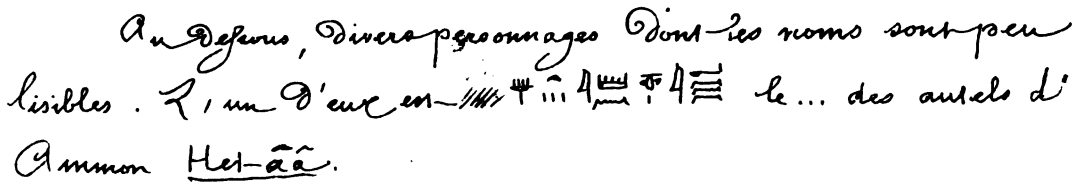 Au dessous, divers personnages dont les noms sont peu
lisibles. L'un d'eux est le... des autels d'
Ammon Het-ââ.